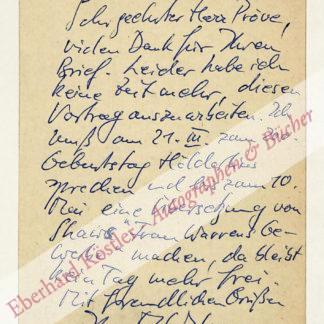 Sehr geehrter Herr Pröve,
vielen Dank für Ihren
Brief. Leider habe ich
keine Zeit mehr, diesen
Vortrag auszuarbeiten. Ich
muß am 21. III. zum
Geburtstag Hölderlins
sprechen und bis zum 10.
Mai eine Übersetzung von
Shaws "Frau Warrens Ge-
werbe" machen, da bleibt
kein Tag mehr frei.
Mit freundlichen Grüßen
Eberhard Köstler Autographen & Bücher